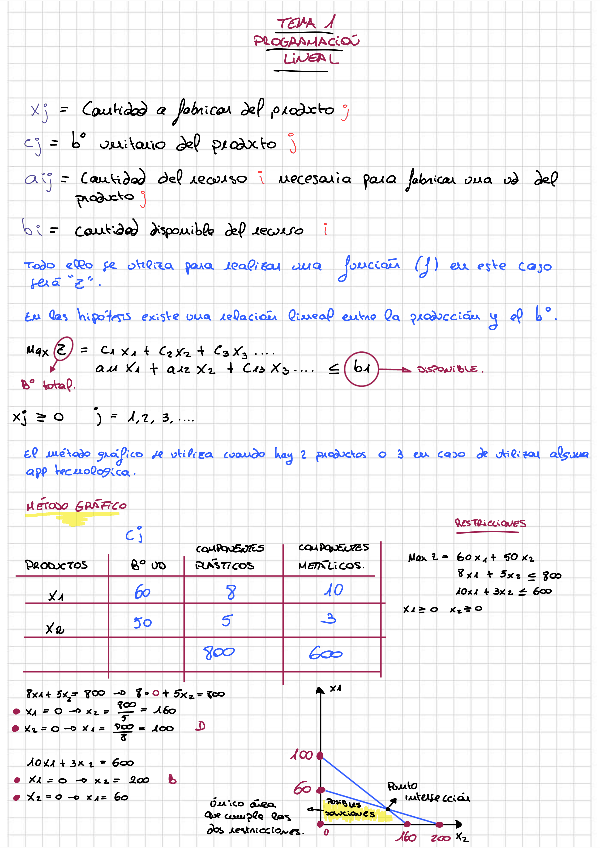 TEMA 1
PROGRAMACIÓN
LINEAL
Xj = Cantidad a fabricar del producto j
Cj = bº unitario del producto j
aij = Cantidad del recurso i necesaria para fabricar una ud del
producto j
bi = cantidad disponible del recurso i
Todo ello se utiliza para realizar una función (f) en este caso
será "Z".
En las hipótesis existe una relación lineal entre la producción y el bº.
Max Z = C1 X1 + C2 X2 + C3 X3 ....
a11 X1 + a12 X2 + C13 X3 .... ≤ b1 → DISPONIBLE.
Bº total.
Xj ≥ 0 j = 1, 2, 3, ....
El método gráfico se utiliza cuando hay 2 productos o 3 en caso de utilizar alguna
app tecnologica.
MÉTODO GRÁFICO
RESTRICCIONES
Cj
PRODUCTOS Bº UD COMPONENTES PLÁSTICOS COMPONENTES METÁLICOS.
X1 60 8 10
X2 50 5 3
800 600
Max Z = 60x1 + 50x2
8x1 + 5x2 ≤ 800
10x1 + 3x2 ≤ 600
X1 ≥ 0 X2 ≥ 0
8x1 + 5x2 = 800 → 8·0 + 5x2 = 800
X1 = 0 → X2 = 800/5 = 160
X2 = 0 → X1 = 800/8 = 100
10x1 + 3x2 = 600
X1 = 0 → X2 = 200
X2 = 0 → X1 = 60
único área
que cumple las
dos restricciones.
X1
100
60
Punto
intersección
POSIBLES
SOLUCIONES
0 160 200 X2